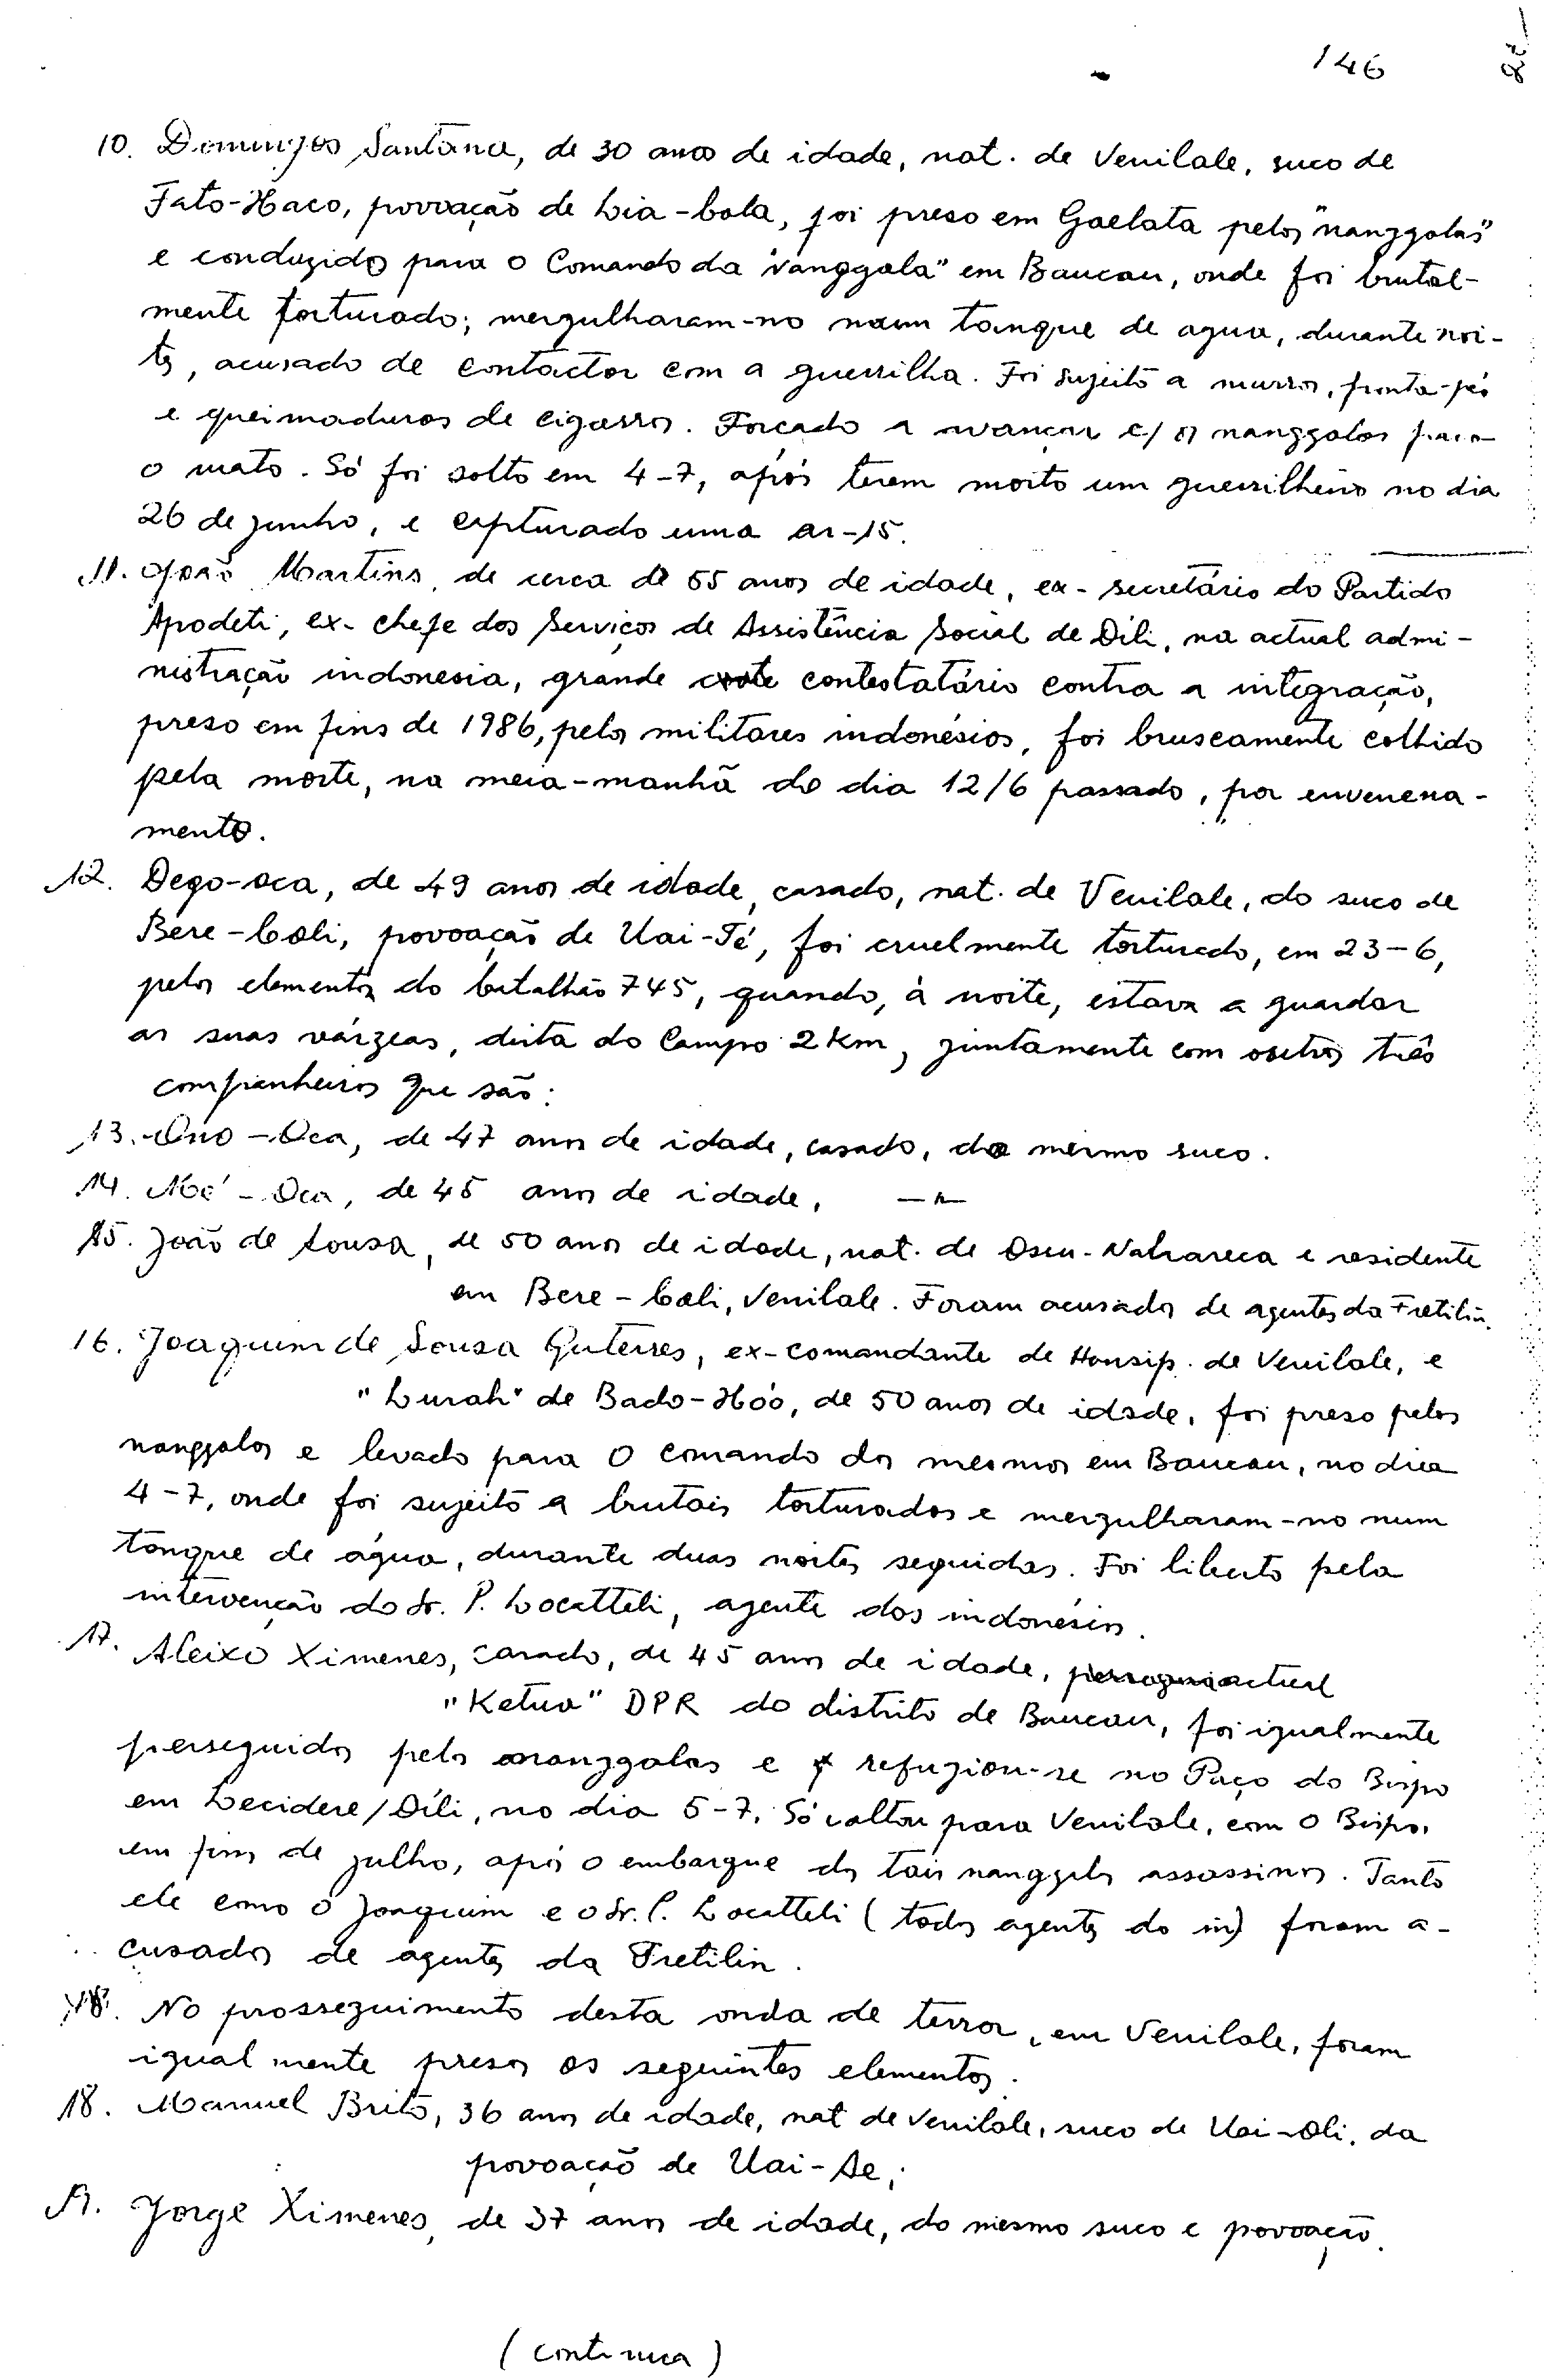 146
10. Domingos Santana, de 30 anos de idade, nat. de Venilale, suco de
Fato-Haco, povoação de Lia-bala, foi preso em Gaelata pelos "nanggalas"
e conduzido para o Comando da "nanggala" em Baucau, onde foi brutal-
mente torturado; mergulharam-no num tanque de agua, durante noi-
tes, acusado de contactar com a guerrilha. Foi sujeito a murros, ponta-pés
e queimaduras de cigarros. Forçado a avançar c/ os nanggalas para
o mato. Só foi solto em 4-7, após terem morto um guerrilheiro no dia
26 de junho, e capturado uma ar-15.
11. João Martins, de cerca de 55 anos de idade, ex-secretário do Partido
Apodeti, ex-chefe dos Serviços de Assistência Social de Díli, na actual admi-
nistração indonesia, grande contestatário contra a integração,
preso em fins de 1986, pelos militares indonésios, foi bruscamente colhido
pela morte, na meia-manhã do dia 12/6 passado, por envenena-
mento.
12. Dego-oca, de 49 anos de idade, casado, nat. de Venilale, do suco de
Bere-coli, povoação de Uai-Té, foi cruelmente torturado, em 23-6,
pelos elementos do batalhão 745, quando, à noite, estava a guardar
as suas várzeas, dista do Campo 2 km, juntamente com outros três
companheiros que são:
13. Ono-Oca, de 47 anos de idade, casado, do mesmo suco.
14. Noé-Oca, de 45 anos de idade, —"—
15. João de Sousa, de 50 anos de idade, nat. de Ossu-Nahareca e residente
em Bere-coli, Venilale. Foram acusados de agentes da Fretilin.
16. Joaquim de Sousa Guterres, ex-comandante de Hansip. de Venilale, e
"Lurah" de Bado-Hóo, de 50 anos de idade, foi preso pelos
nanggalas e levado para o comando dos mesmos em Baucau, no dia
4-7, onde foi sujeito a brutais torturados e mergulharam-no num
tanque de água, durante duas noites seguidas. Foi liberto pela
intervenção do Sr. P. Locatteli, agente dos indonésios.
17. Aleixo Ximenes, casado, de 45 anos de idade, actual
"Ketua" DPR do distrito de Baucau, foi igualmente
perseguidos pelos nanggalas e refugiou-se no Paço do Bispo
em Lecidere/Díli, no dia 5-7. Só voltou para Venilale, com o Bispo,
em fins de julho, após o embarque dos tais nanggalas assassinos. Tanto
ele como o Joaquim e o Sr. P. Locatteli (todos agentes do in) foram a-
cusados de agentes da Fretilin.
18. No prosseguimento desta onda de terror, em Venilale, foram
igualmente presos os seguintes elementos.
18. Manuel Brito, 36 anos de idade, nat de Venilale, suco de Uai-Oli, da
povoação de Uai-Ae;
19. Jorge Ximenes, de 37 anos de idade, do mesmo suco e povoação.
(continua)